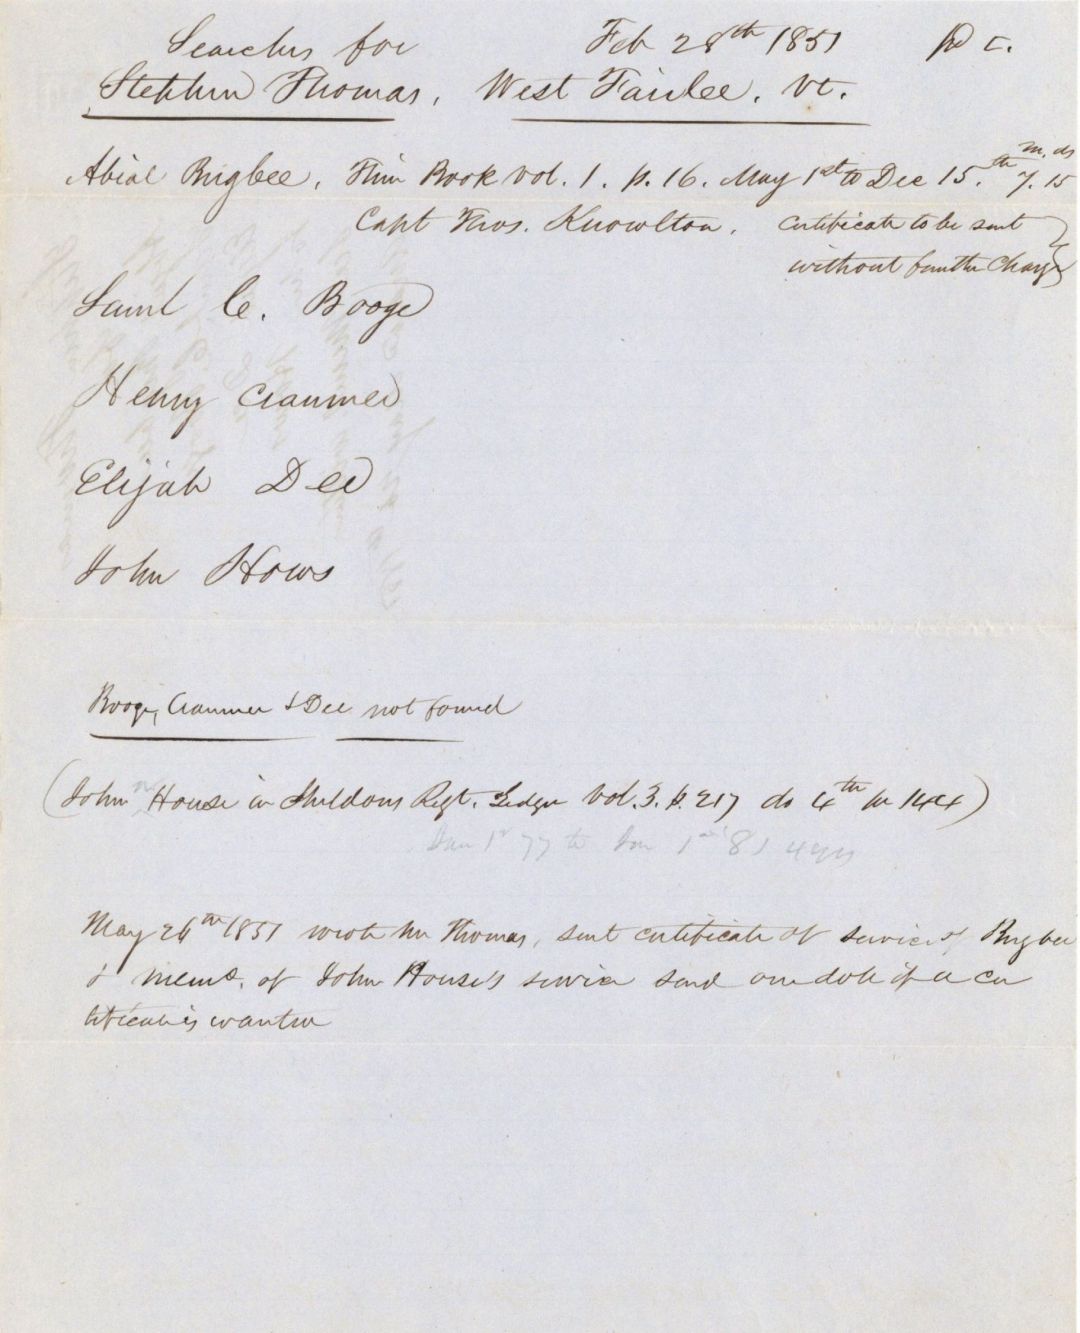 Searches for Feb 28th 1851 pd
Stephen Thomas, West Fairlee. Vt.
Abial Bugbee, Book vol. 1. p. 16. May 1st to Dec 15.th m. ds 7. 15
Capt Thos. Knowlton. certificate to be sent
without further charge
Saml C. Booge
Henry Cranmer
Elijah Dee
John Hows
Booge, Cranmer & Dee not found
(John House in Sheldons Regt. Ledger Vol. 3. p. 217 do 4th 144)
Jan 1st 77 to Jan 1st 81 4 yrs
May 26th 1851 wrote Mr Thomas, sent certificate of service of Bugbee
& mem. of John House's service send one doll if a cer
tificate is wanted